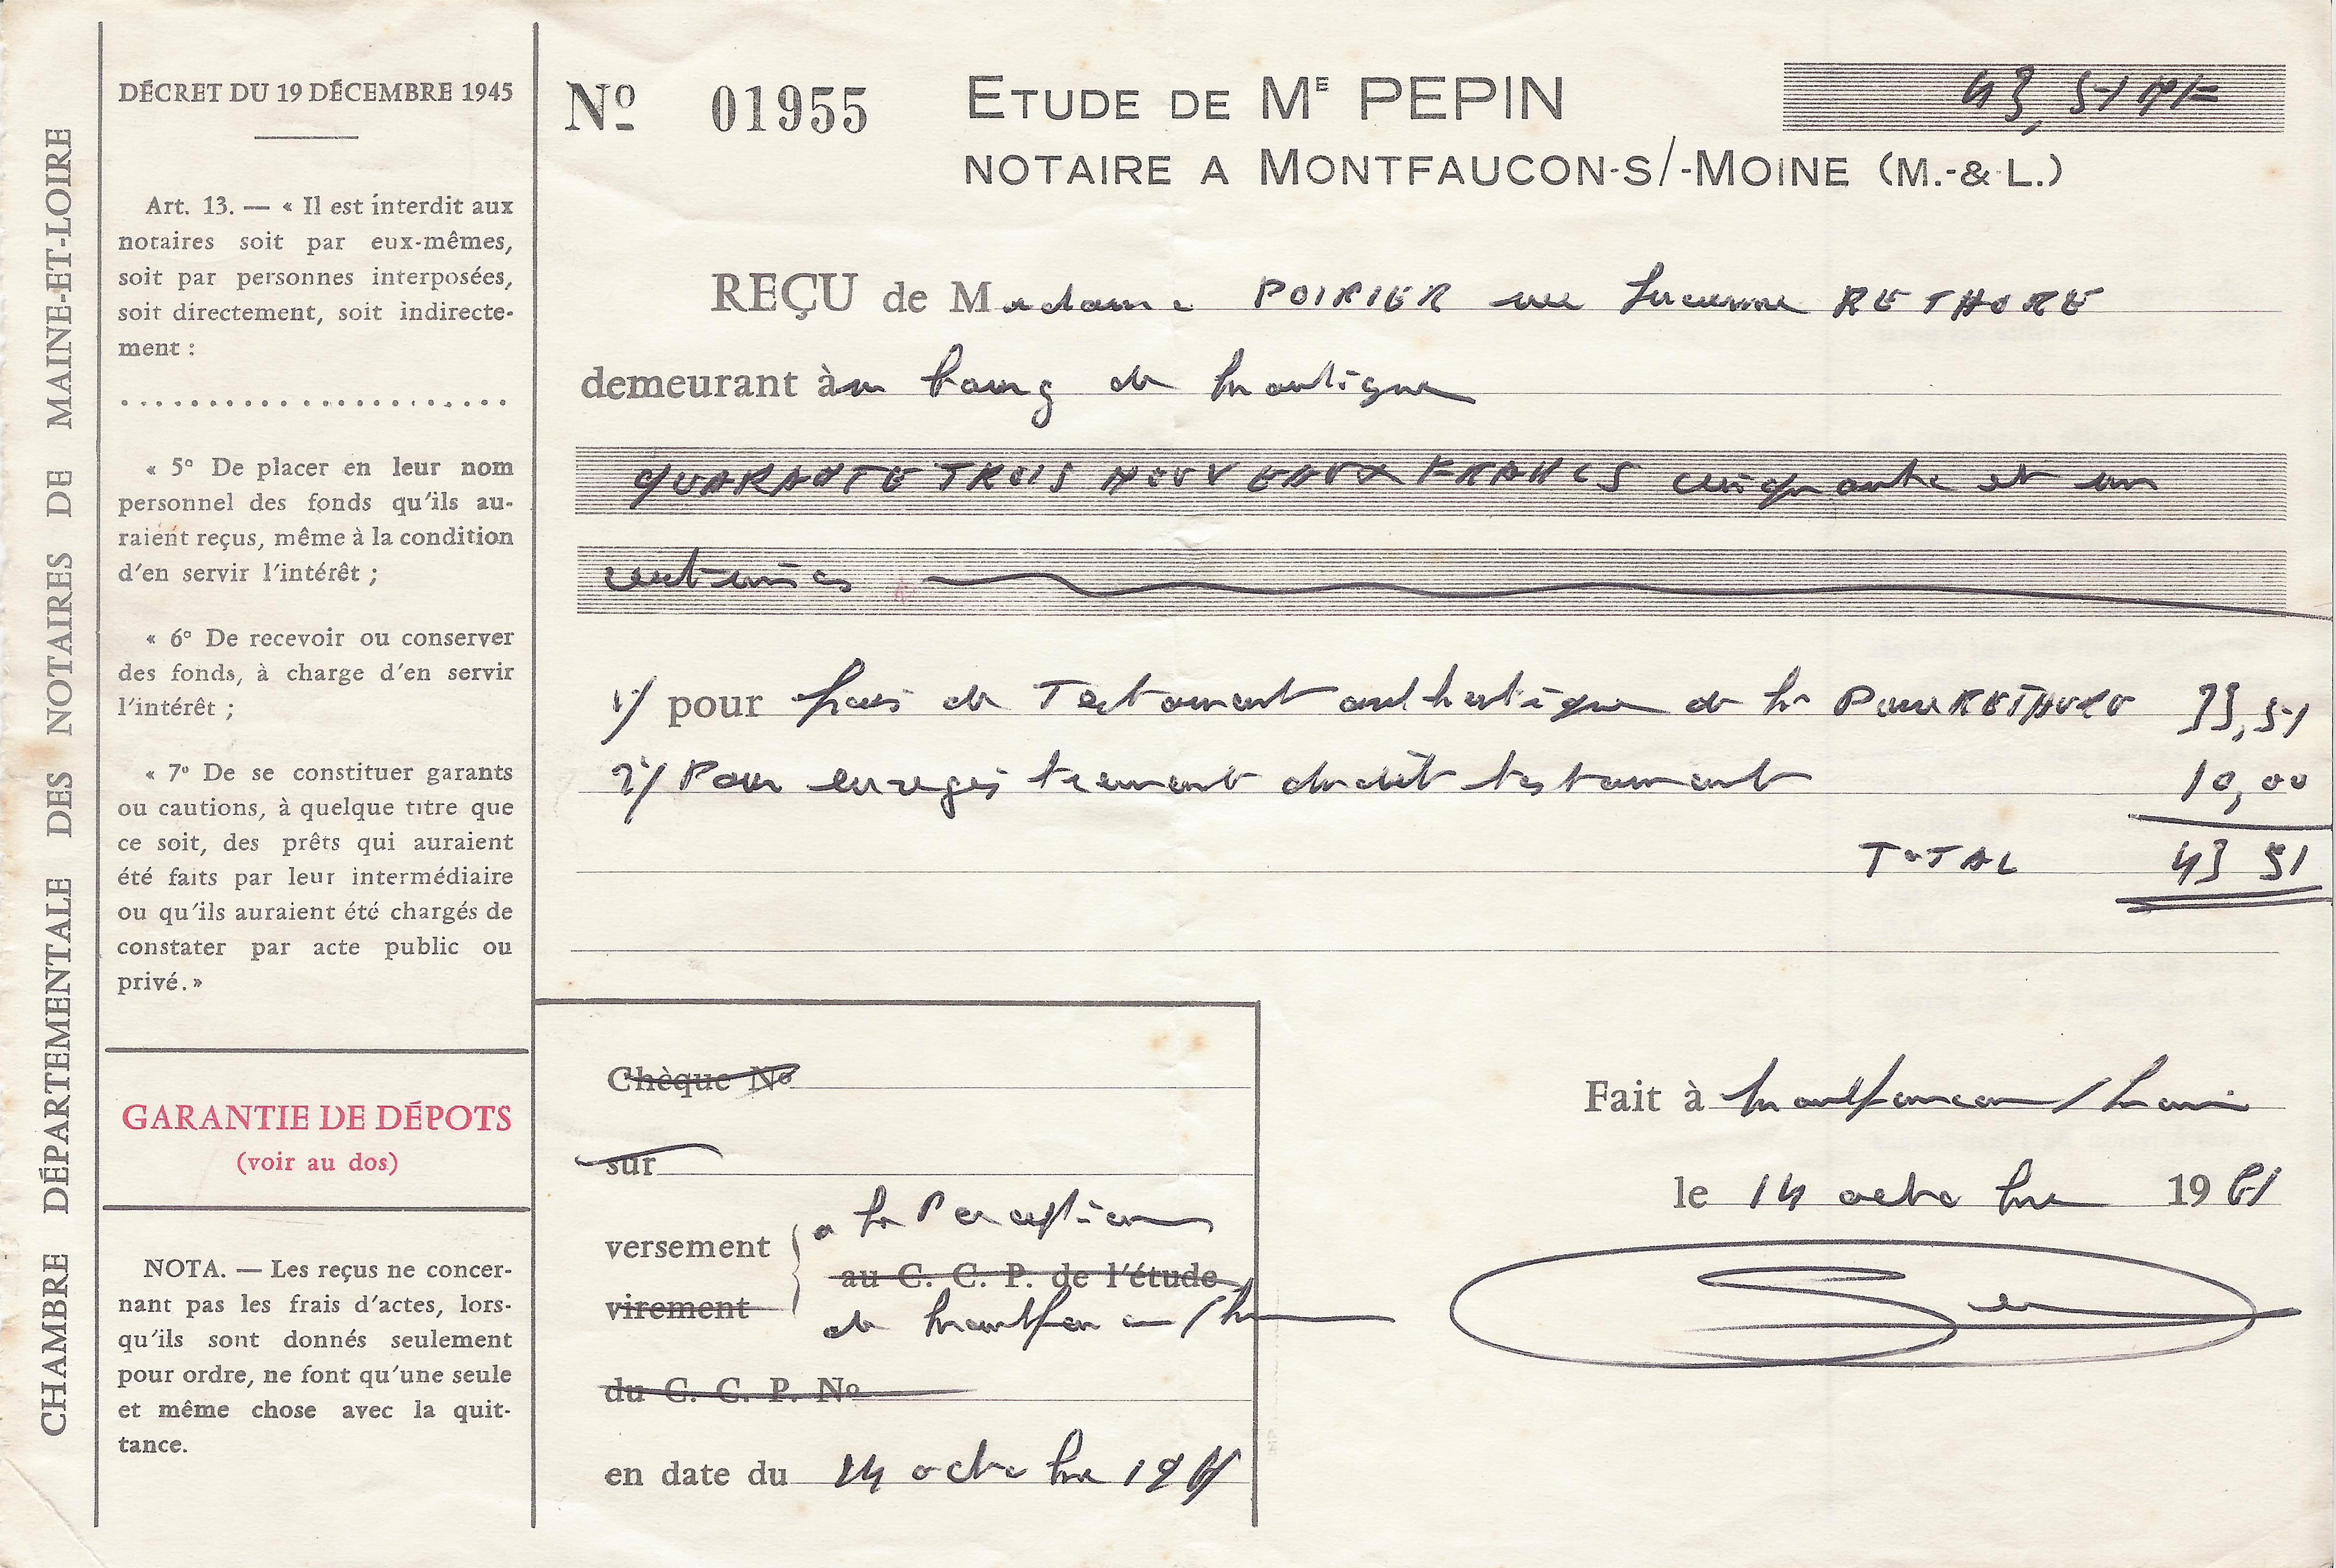 CHAMBRE DÉPARTEMENTALE DES NOTAIRES DE MAINE-ET-LOIRE
DÉCRET DU 19 DÉCEMBRE 1945
Art. 13. — « Il est interdit aux
notaires soit par eux-mêmes,
soit par personnes interposées,
soit directement, soit indirecte-
ment :
« 5° De placer en leur nom
personnel des fonds qu'ils au-
raient reçus, même à la condition
d'en servir l'intérêt ;
« 6° De recevoir ou conserver
des fonds, à charge d'en servir
l'intérêt ;
« 7° De se constituer garants
ou cautions, à quelque titre que
ce soit, des prêts qui auraient
été faits par leur intermédiaire
ou qu'ils auraient été chargés de
constater par acte public ou
privé. »
GARANTIE DE DÉPOTS
(voir au dos)
NOTA. — Les reçus ne concer-
nant pas les frais d'actes, lors-
qu'ils sont donnés seulement
pour ordre, ne font qu'une seule
et même chose avec la quit-
tance.
Nº 01955
ETUDE DE Mᴱ PEPIN
NOTAIRE A MONTFAUCON-S/-MOINE (M.-&-L.)
43,51 NF
REÇU de Madame POIRIER née Lucienne RETHORE
demeurant à au bourg de Montigné
QUARANTE TROIS NOUVEAUX FRANCS cinquante et un
centimes
1°/ pour frais de Testament authentique de Mr RETHORE 33,51
2°/ Pour enregistrement dudit testament 10,00
TOTAL 43 51
Chèque Nº
sur
versement
virement
à la Perception
au C. C. P. de l'étude
de Montfaucon/M
du C. C. P. Nº
en date du 14 octobre 1961
Fait à Montfaucon/Moine
le 14 octobre 1961